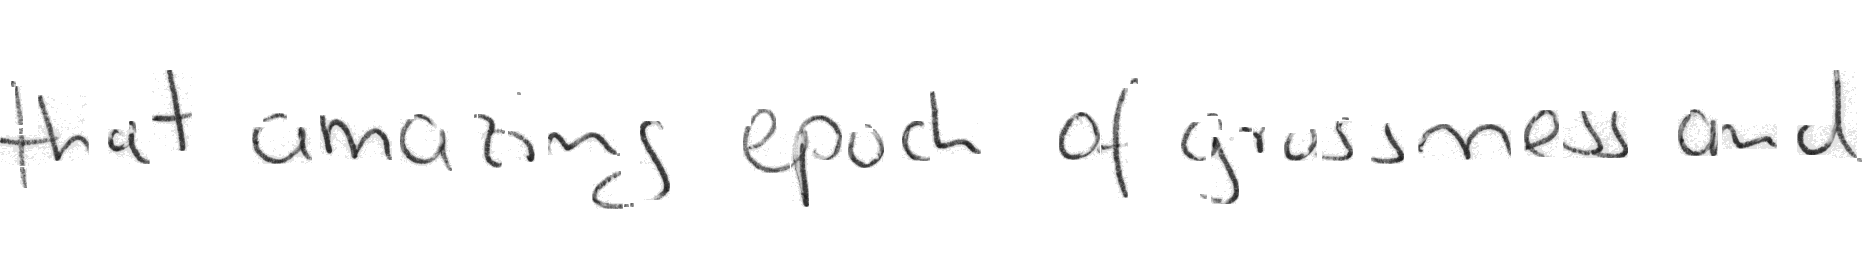 that amazing epoch of grossness and